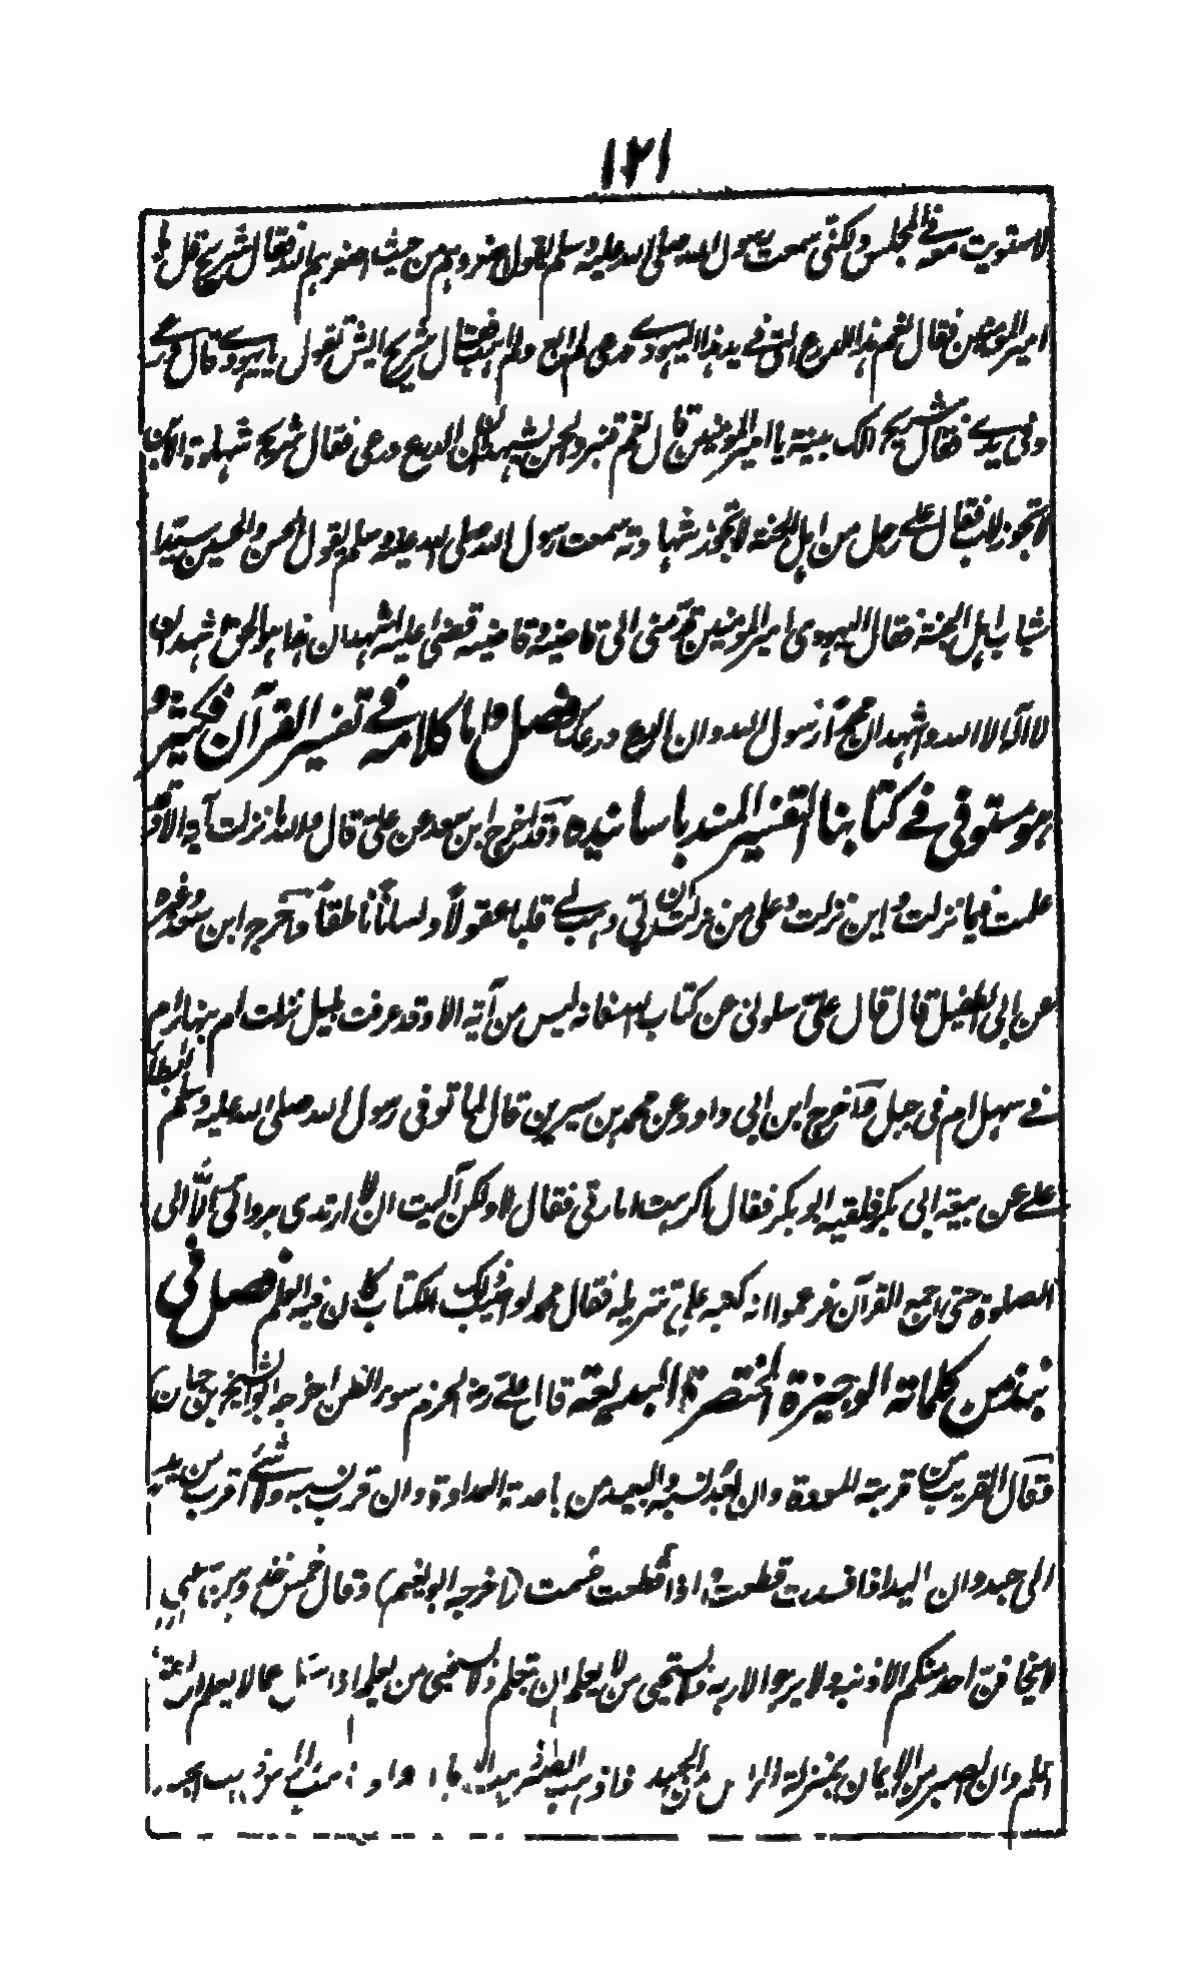 ١٢١
لاستويت معه في المجلس ولكنى سمعت رسول الله صلى الله عليه وسلم يقول اصغروهم من حيث اصغرهم الله فقال شريح قل يا
امير المؤمنين فقال نعم هذا الدرع التى في يد هذا اليهودے درعى لم ابع ولم اهب فقال شريح ايش تقول يا يهودے قال درعے
وفى يدے فقال شريح الك بينة يا امير المؤمنين قال نعم قنبر والحسن يشهدان ان الدرع درعى فقال شريح شهادة الابن
لا تجوز للاب فقال علے رجل من اهل الجنة لا تجوز شهادته سمعت رسول الله صلى الله عليه وسلم يقول الحسن والحسين سيدا
شباب اهل الجنة فقال اليهودى امير المؤمنين قدمنى الى قاضيه وقاضيه قضى عليه اشهد ان هذا هو الحق اشهد ان
لا اله الا الله واشهد ان محمدا رسول الله وان الدرع درعك فصل واما كلامه في تفسير القرآن فكثير و
هو مستوفى في كتابنا التفسير المسند باسانيده وقد اخرج ابن سعد عن على قال والله ما نزلت آية الا وقد
علمت فيما نزلت واين نزلت وعلى من نزلت ان ربى وهب لے قلبا عقولا ولسانا ناطقا واخرج ابن سعد وغيره
عن ابى الطفيل قال قال على سلونى عن كتاب الله فانه ليس من آية الا وقد عرفت بليل نزلت ام بنهار ام
في سهل ام فى جبل واخرج ابن ابى داود عن محمد بن سيرين قال لما توفى رسول الله صلى الله عليه وسلم ابطأ
علے عن بيعة ابى بكر فلقيه ابو بكر فقال اكرهت امارتى فقال لا ولكن آليت ان لا ارتدى بردائى الا الى
الصلوة حتى اجمع القرآن فزعموا انه كتبه على تنزيله فقال محمد لو اصيب ذلك الكتاب كان فيه العلم فصل فى
نبذ من كلماته الوجيزة المختصرة البديعة قال علے رض الحزم سوء الظن اخرجه ابو الشيخ بن حبان
وقال القريب من قربته المودة وان بعد نسبه والبعيد من باعدته العداوة وان قرب نسبه ولا شئے اقرب من يد
الى جسد وان اليد اذا فسدت قطعت واذا قطعت حسمت (اخرجه ابو نعيم) وقال خمس خذوهن عنى
لا يخافن احد منكم الا ذنبه ولا يرجو الا ربه ولا يستحيى من لا يعلم ان يتعلم ولا يستحيى من يعلم اذا سئل عما لا يعلم ان يقول الله
اعلم وان الصبر من الايمان بمنزلة الراس من الجسد فاذا ذهب الصبر ذهب الايمان واذا ذهب الراس ذهب الجسد